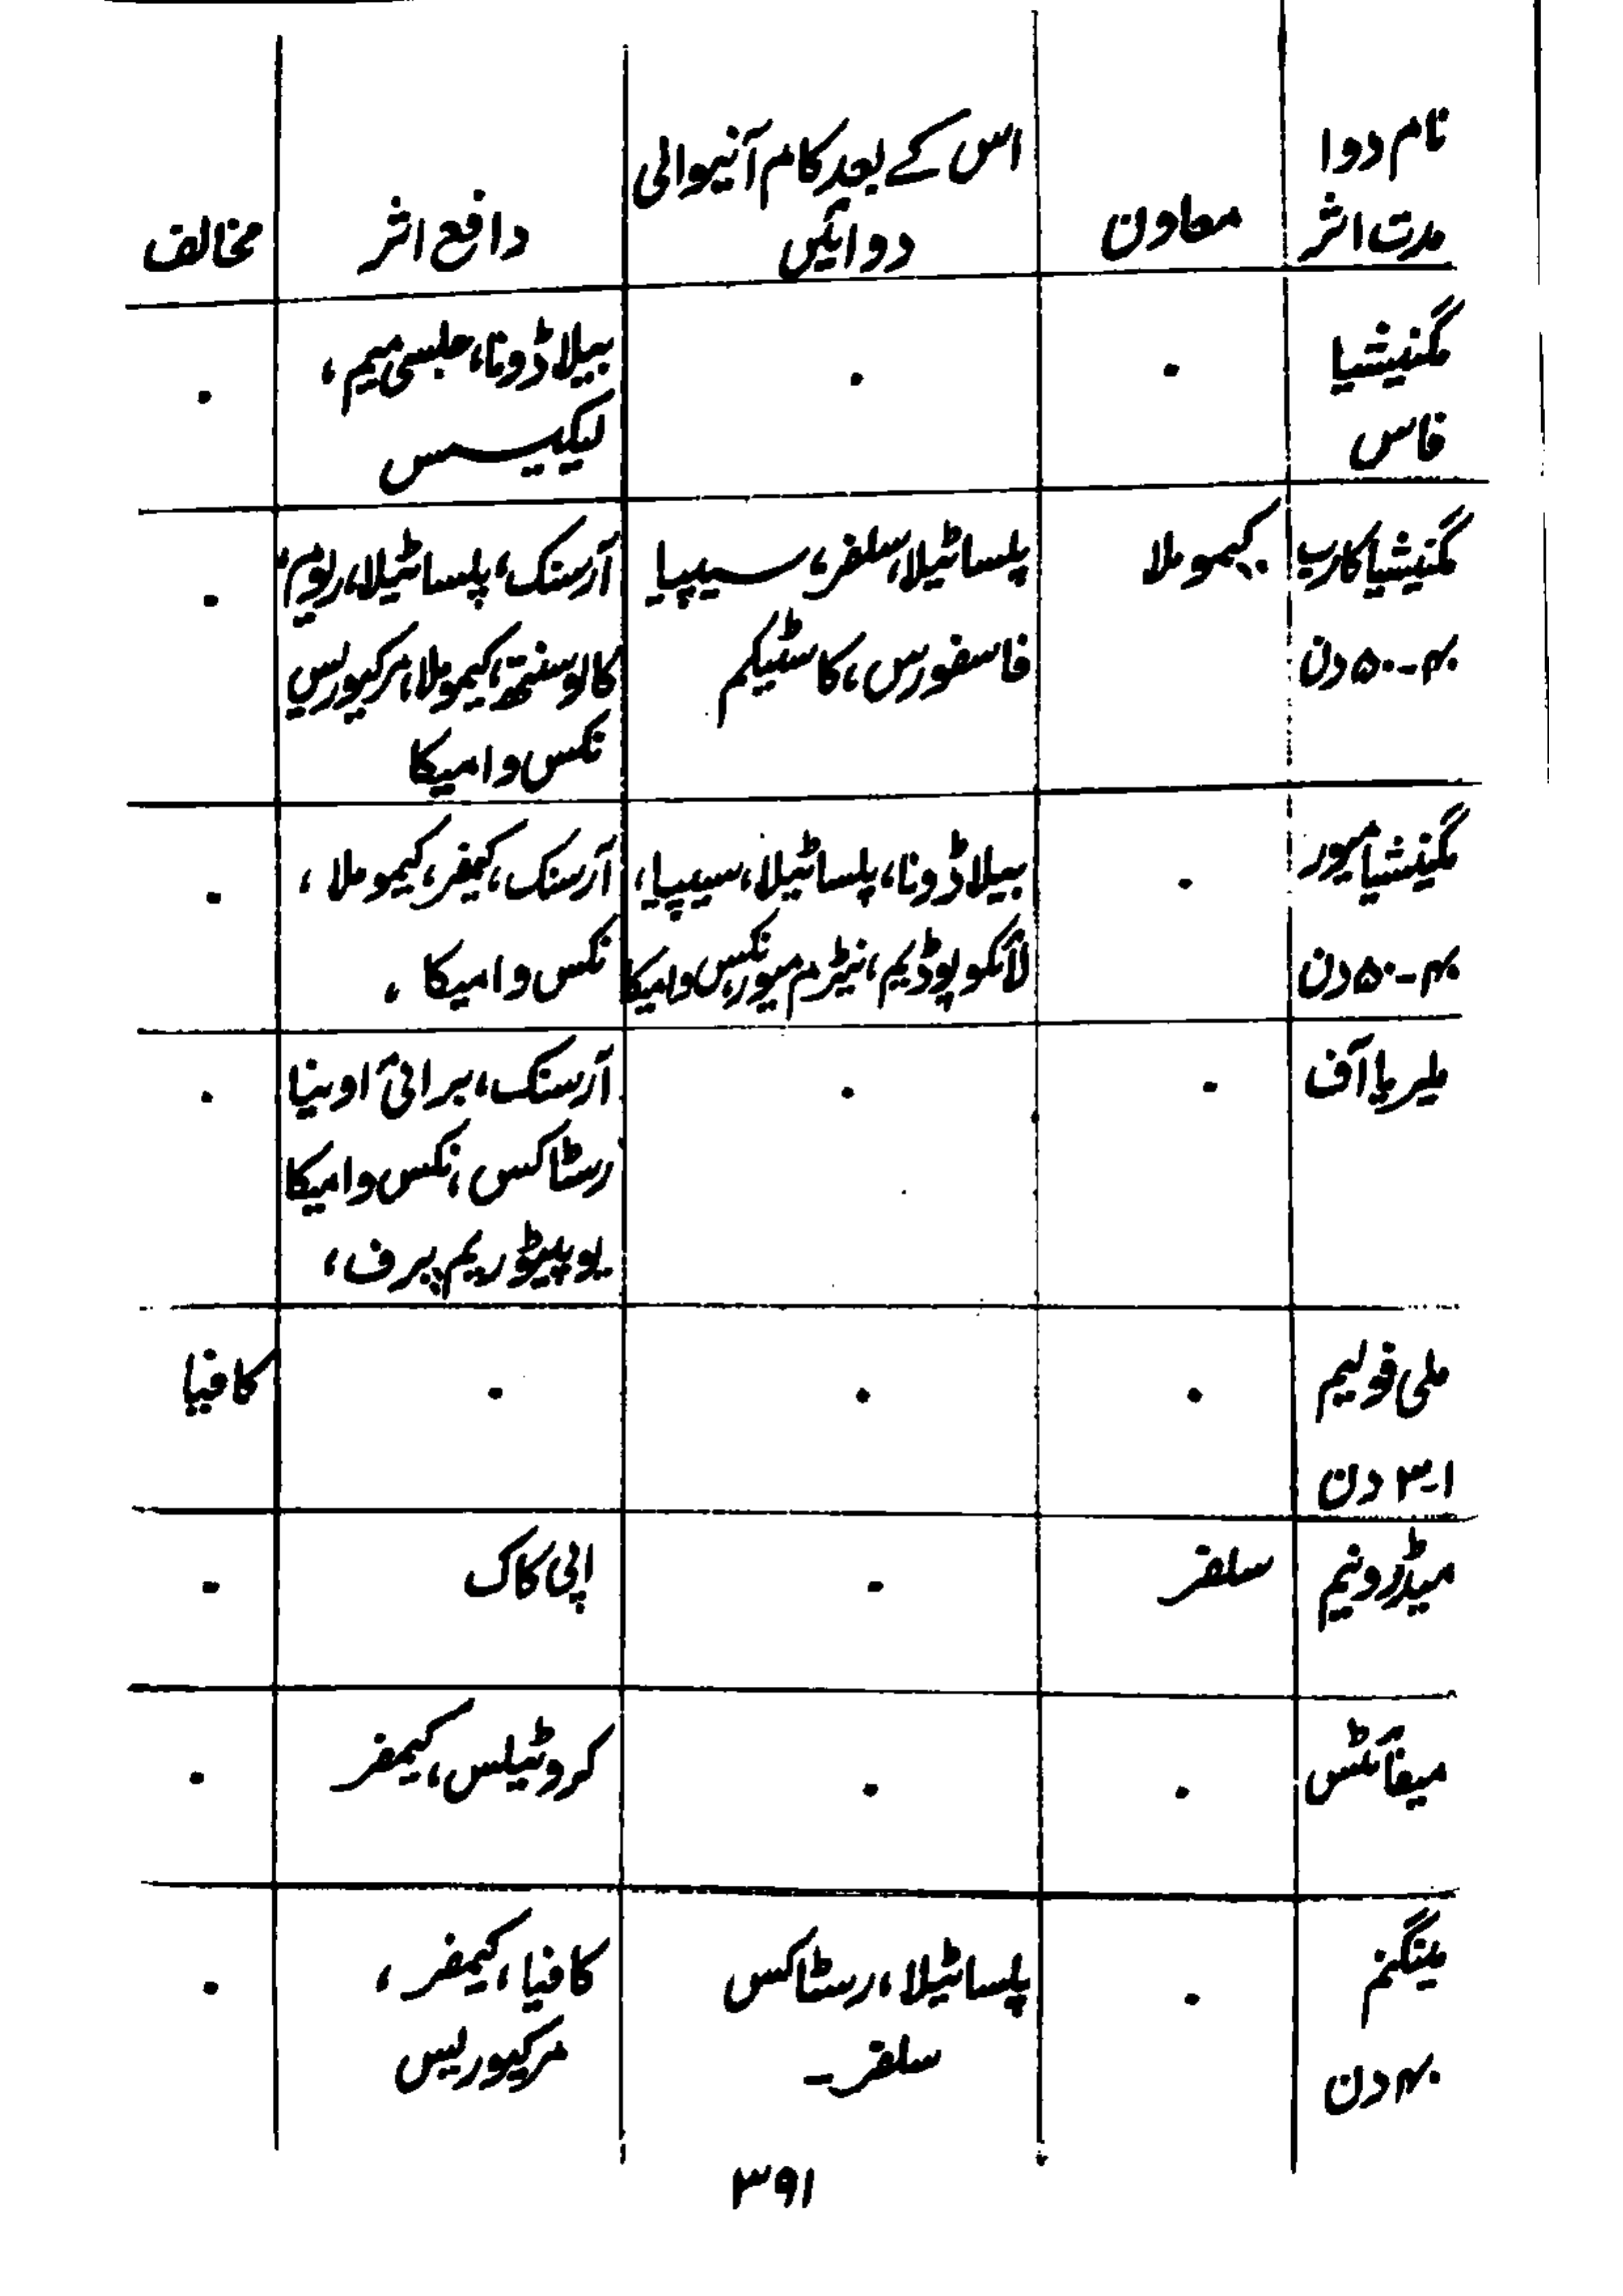 نام دوا
مدت اثر
معاون
اس کے بعد کام آنیوالی
دوائیں
دافع اثر
مخالف
مگنیشیا
فاس
۰
۰
بیلاڈونا، جلسی میم،
لیکیسس
۰
مگنیشیا کارب
۴۰-۵۰ دن
کیموملا
پلساٹیلا، سلفر، سیپیا
فاسفورس، کاسٹیکم
آرسنک، پلساٹیلا، ریوم،
کالوسنتھ، کیموملا، مرکیورس
نکس وامیکا
۰
مگنیشیا میور
۴۰-۵۰ دن
۰
بیلاڈونا، پلساٹیلا، سیپیا،
لائکوپوڈیم، نیٹرم میور، نکس وامیکا
آرسنک، کیمفر، کیموملا،
نکس وامیکا،
۰
ملیریا آف
۰
۰
آرسنک، برائی اونیا
رسٹاکس، نکس وامیکا
یوپیٹوریم پرف،
۰
ملی فولیم
۱-۳ دن
۰
۰
۰
کافیا
میڈرونیم
سلفر
۰
اپی کاک
۰
میفائٹس
۰
۰
کروٹیلس، کیمفر
۰
مینگنم
۴۰ دن
۰
پلساٹیلا، رسٹاکس
سلفر۔
کافیا، کیمفر،
مرکیورس
۰
۳۹۱